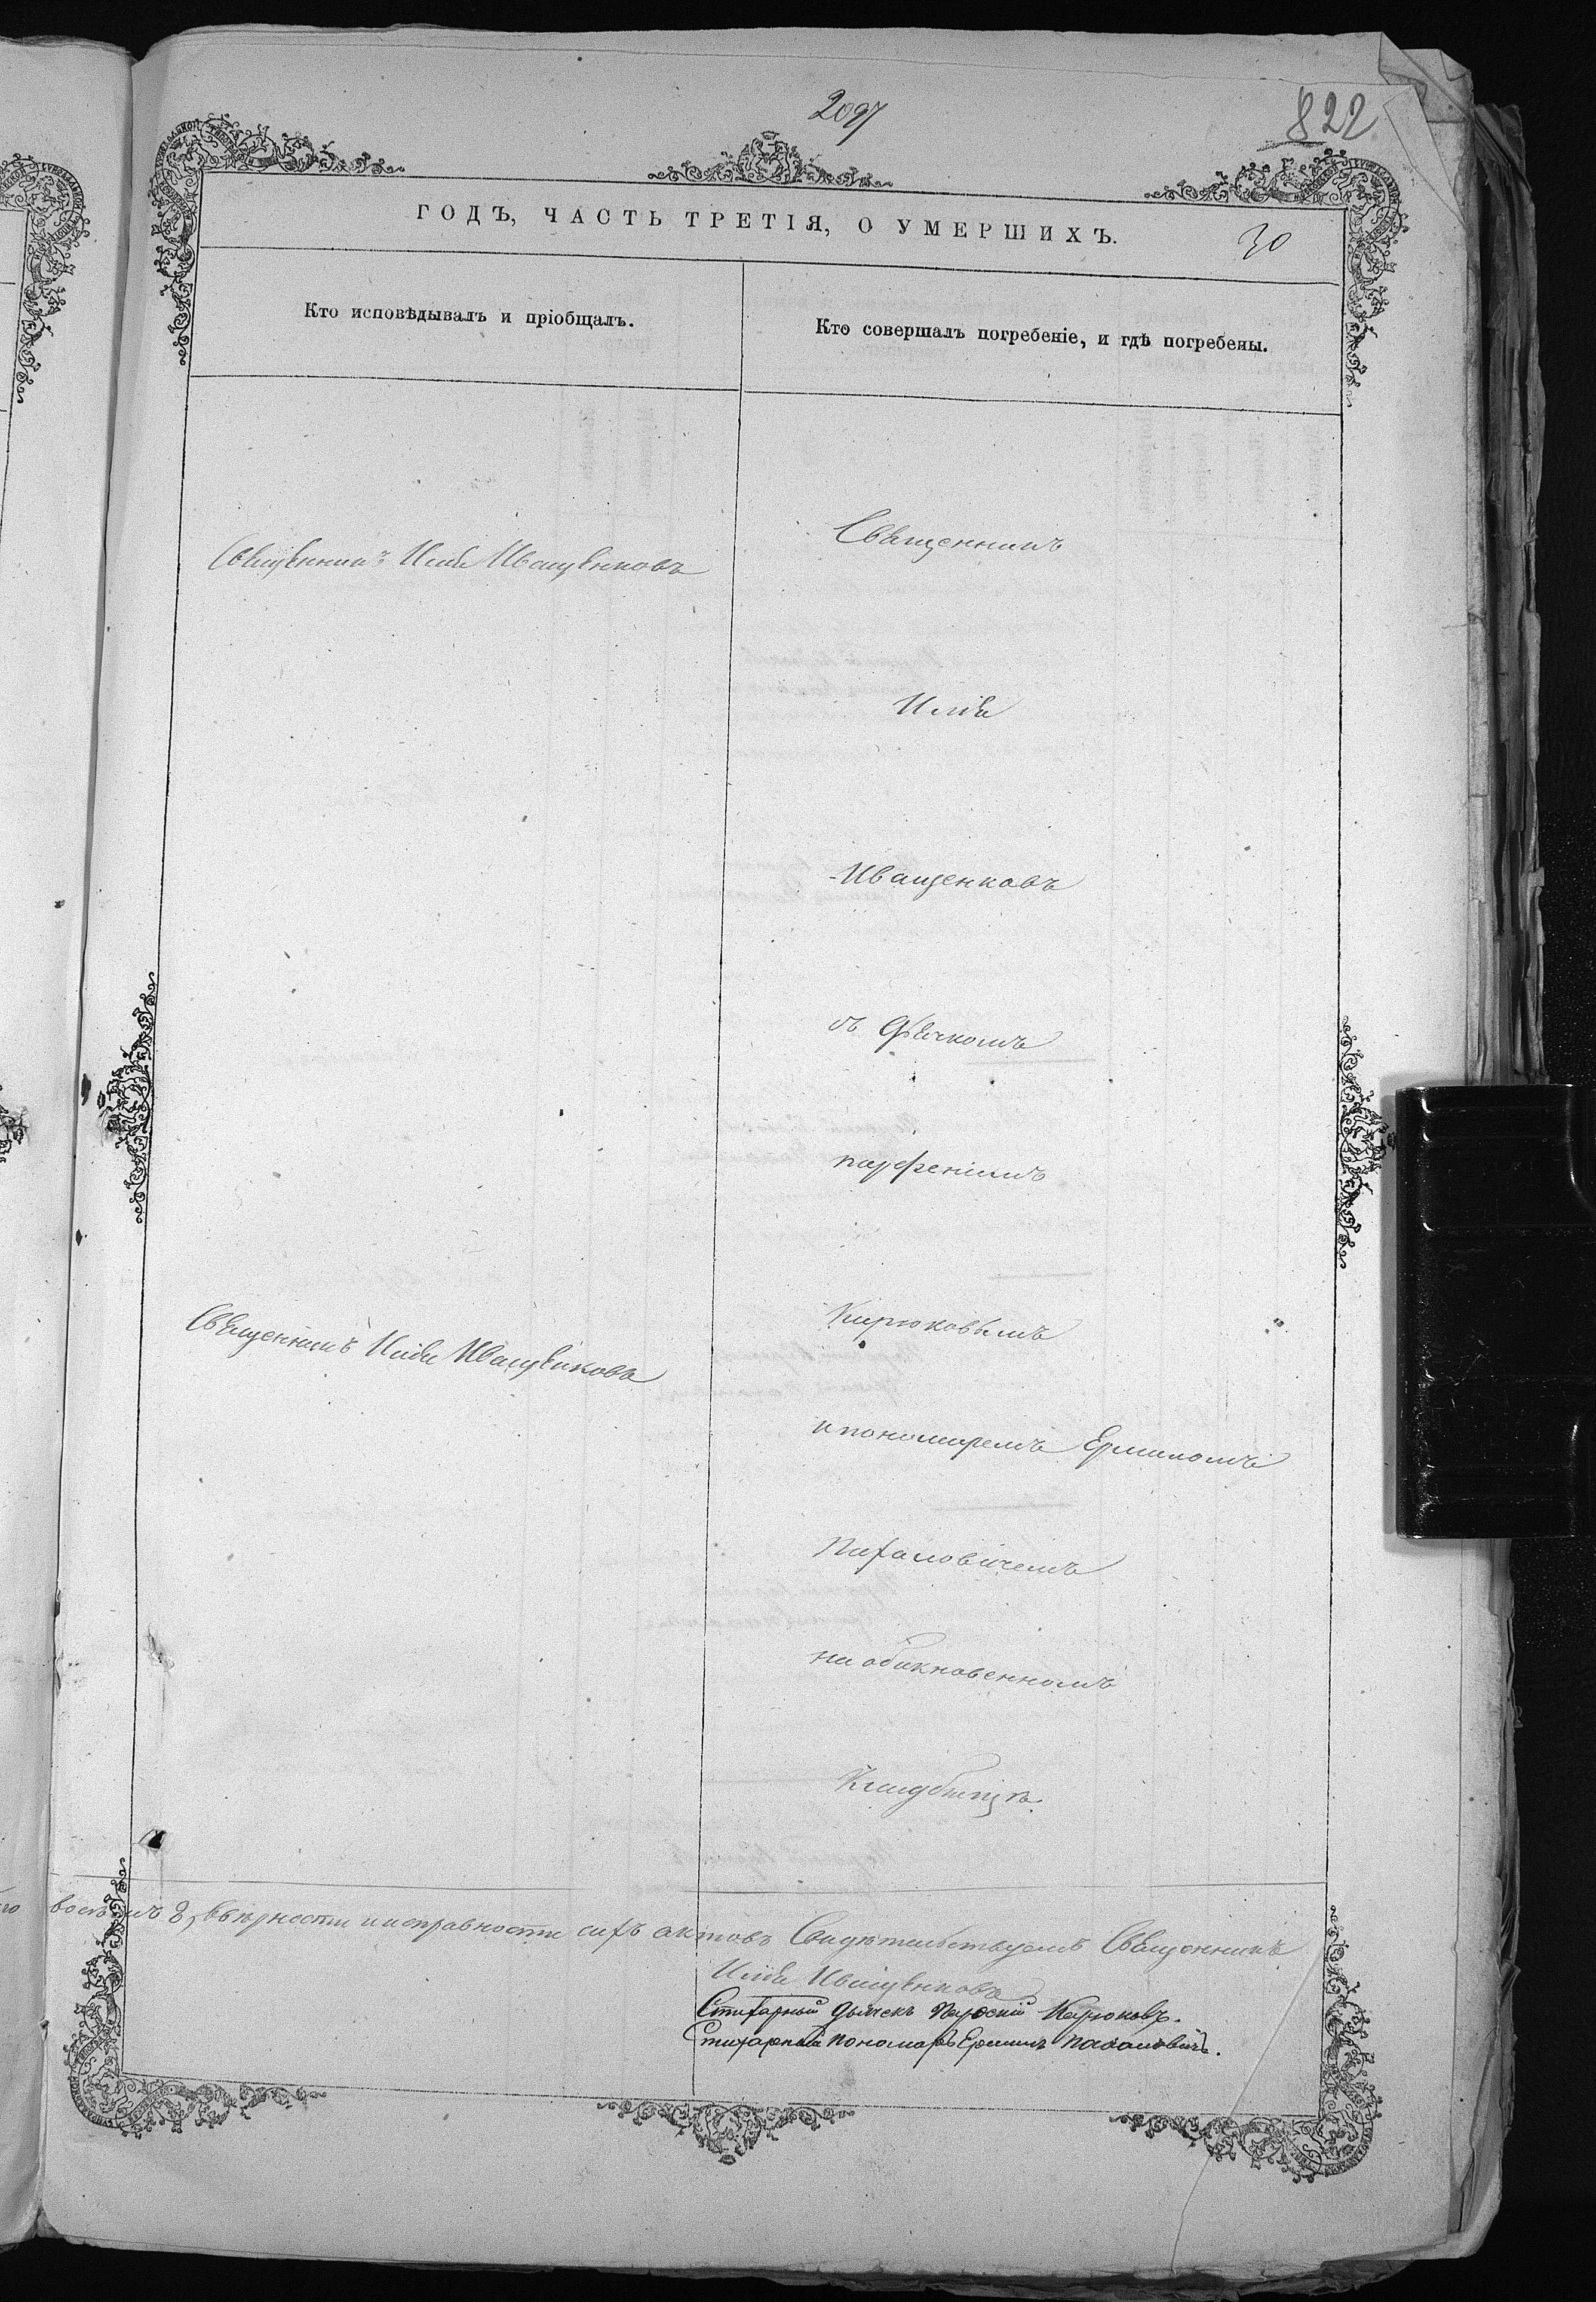 2097
822
ГОДЪ, ЧАСТЬ ТРЕТІЯ, О УМЕРШИХЪ.
30
Кто исповѣдывалъ и пріобщалъ.
Кто совершалъ погребеніе, и гдѣ погребены.
Священникъ Илія Иващенковъ
Священникъ
Илія
Иващенковъ
съ Дьячкомъ
парфеніемъ
Кирюковымъ
Священникъ Илія Иващенковъ
и пономаремъ Ермиломъ
Пахаловичемъ
на обикновенномъ
Кладбищѣ.
восемъ 8, вѣрности и исправности сихъ актовъ Свидѣтельствуемъ Священникъ
Илія Иващенковъ
Стихарный дьячекъ Парфеній Кирюковъ.
Стихарный пономарь Ермилъ Пахаловичъ.